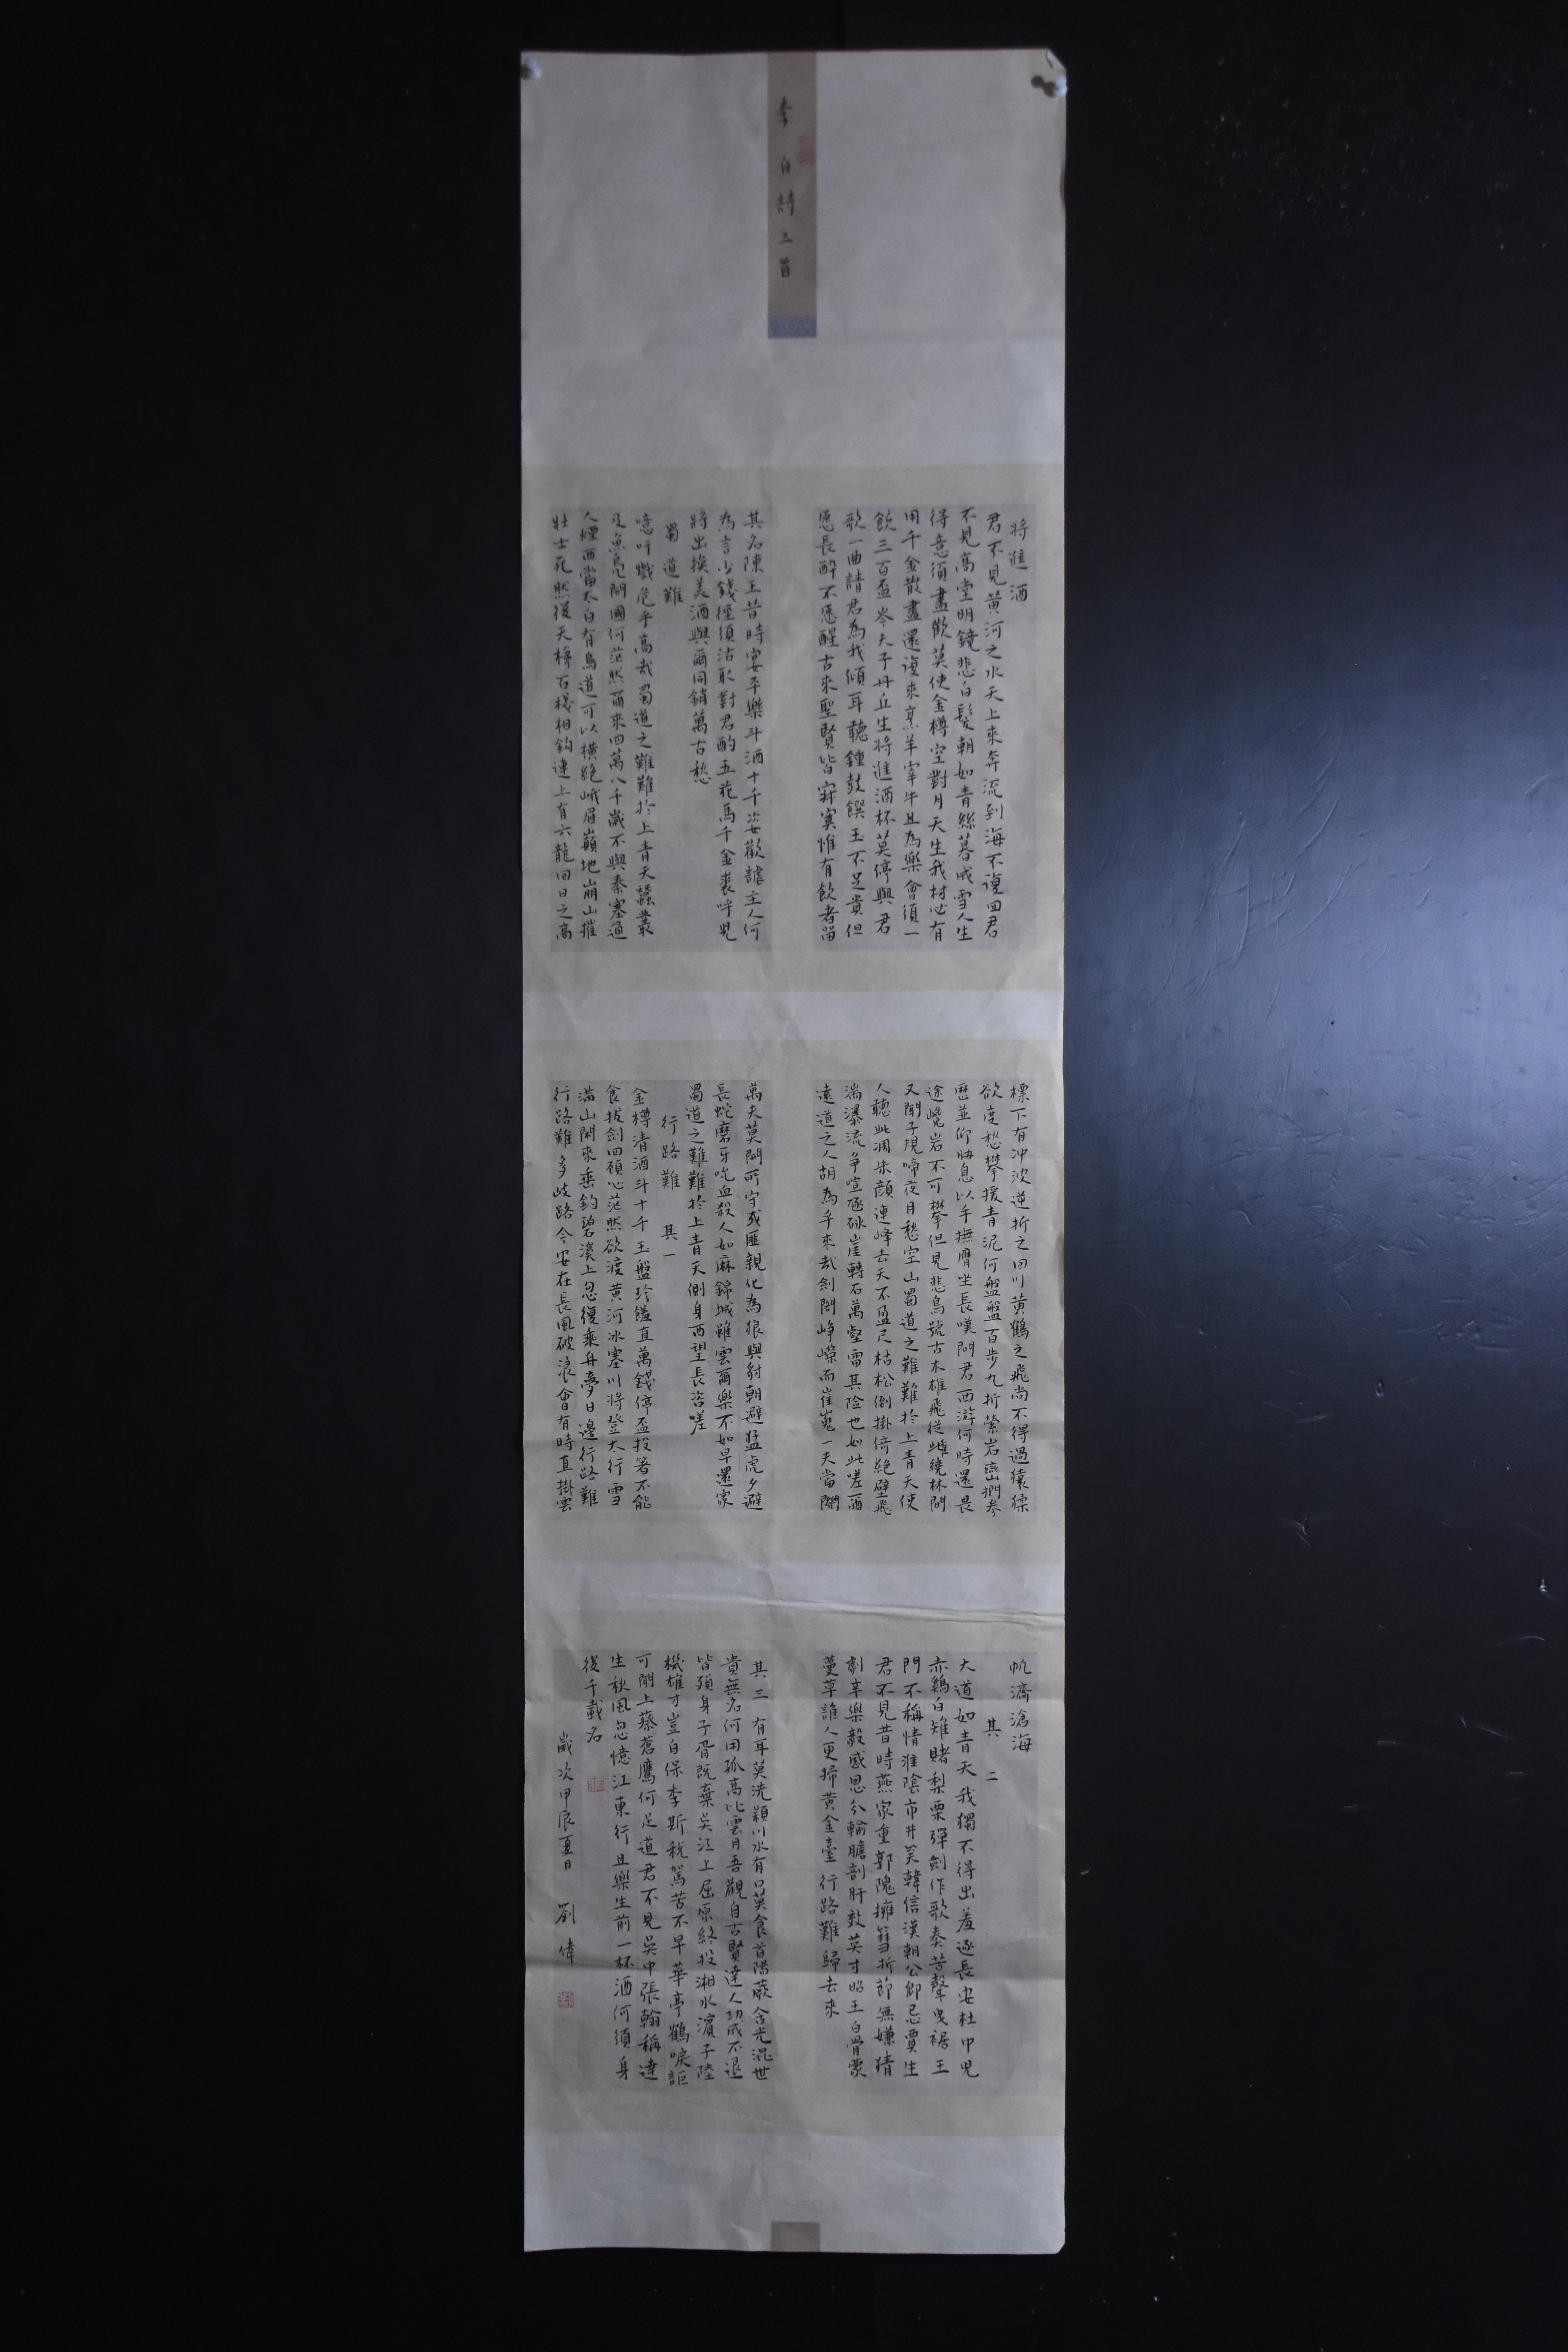 李白詩三首
將進酒
君不見黃河之水天上來奔流到海不復回君
不見高堂明鏡悲白髮朝如青絲暮成雪人生
得意須盡歡莫使金樽空對月天生我材必有
用千金散盡還復來烹羊宰牛且為樂會須一
飲三百盃岑夫子丹丘生將進酒杯莫停與君
歌一曲請君為我傾耳聽鍾鼓饌玉不足貴但
愿長醉不愿醒古來聖賢皆寂寞惟有飲者留
其名陳王昔時宴平樂斗酒十千姿歡謔主人何
為言少錢徑須沽取對君酌五花馬千金裘呼兒
將出換美酒與爾同銷萬古愁
蜀道難
噫吁戲危乎高哉蜀道之難難於上青天蠶叢
及魚鳧開國何茫然爾來四萬八千歲不與秦塞通
人煙西當太白有鳥道可以橫絕峨眉巔地崩山摧
壯士死然後天梯石棧相鉤連上有六龍回日之高
標下有沖波逆折之回川黃鶴之飛尚不得過猿猱
欲度愁攀援青泥何盤盤百步九折縈岩巒捫參
歷並仰脅息以手撫膺坐長嘆問君西游何時還畏
途巉岩不可攀但見悲鳥號古木雄飛從雌繞林間
又聞子規啼夜月愁空山蜀道之難難於上青天使
人聽此凋朱顏連峰去天不盈尺枯松倒掛倚絕壁飛
湍瀑流爭喧豗砯崖轉石萬壑雷其險也如此嗟爾
遠道之人胡為乎來哉劍閣崢嶸而崔嵬一夫當關
萬夫莫開所守或匪親化為狼與豺朝避猛虎夕避
長蛇磨牙吮血殺人如麻錦城雖雲爾樂不如早還家
蜀道之難難於上青天側身西望長咨嗟
行路難 其一
金樽清酒斗十千玉盤珍饈直萬錢停盃投箸不能
食拔劍四顧心茫然欲渡黃河冰塞川將登太行雪
滿山閑來垂釣碧溪上忽復乘舟夢日邊行路難
行路難多歧路今安在長風破浪會有時直掛雲
帆濟滄海
其二
大道如青天我獨不得出羞逐長安杜中兒
赤雞白雉賭梨栗彈劍作歌奏苦聲曳裾王
門不稱情淮陰市井笑韓信漢朝公卿忌賈生
君不見昔時燕家重郭隗擁篲折節無嫌猜
劇辛樂毅感恩分輸膽剖肝效英才昭王白骨縈
蔓草誰人更掃黃金臺行路難歸去來
其三 有耳莫洗潁川水有口莫食首陽蕨含光混世
貴無名何用孤高比雲月吾觀自古賢達人功成不退
皆殞身子胥既棄吳江上屈原終投湘水濱子陸
機雄才豈自保李斯稅駕苦不早華亭鶴唳詎
可聞上蔡蒼鷹何足道君不見吳中張翰稱達
生秋風忽憶江東行且樂生前一杯酒何須身
後千載名
歲次甲辰夏日 劉偉